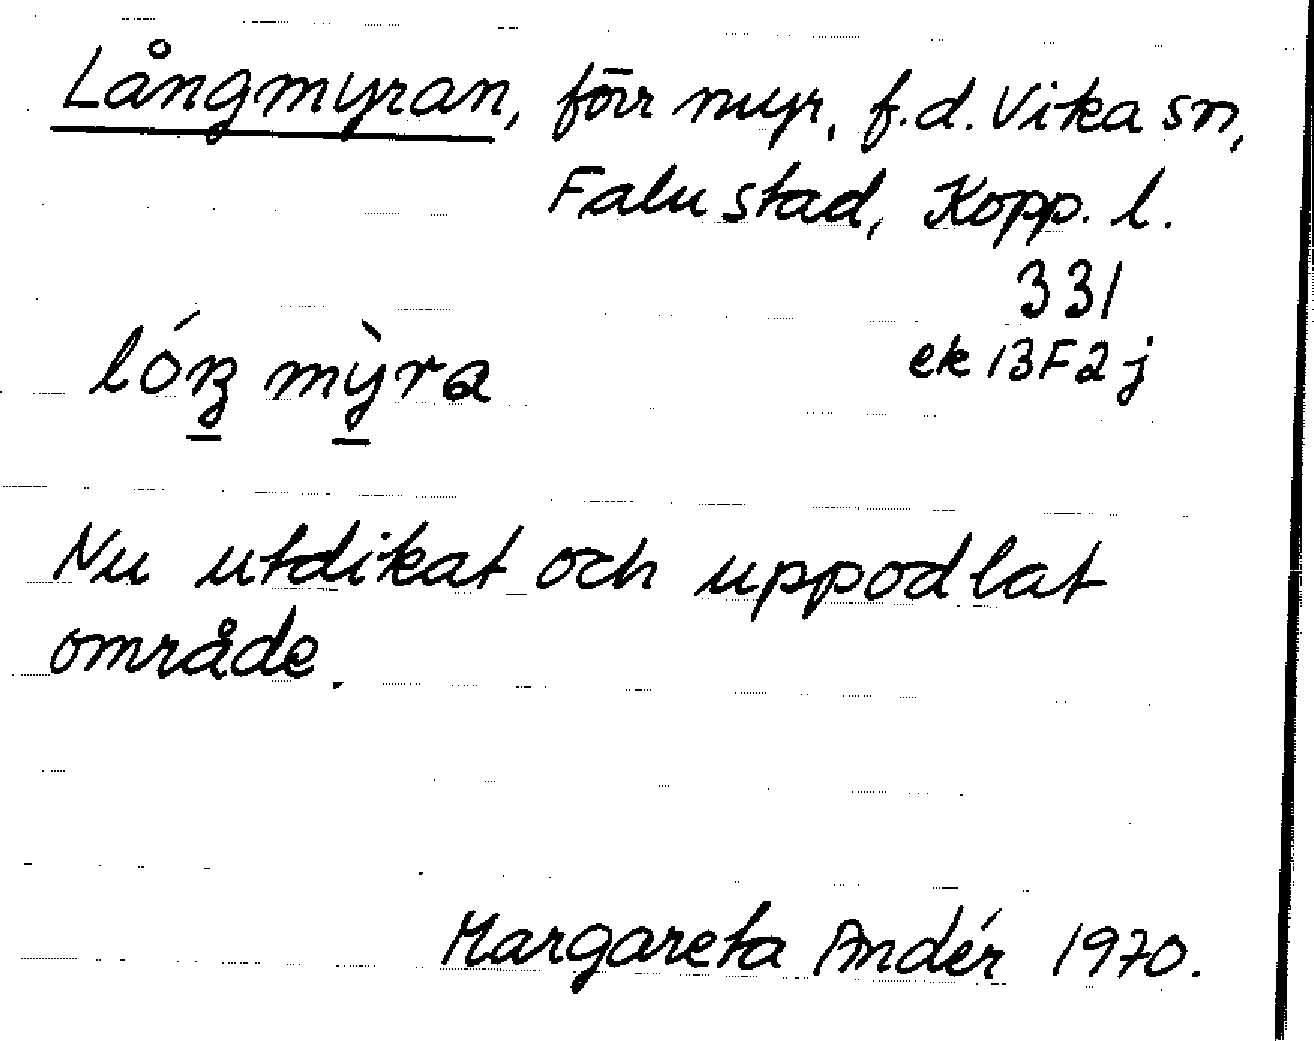 Långmyran, förr myr, f.d. Vika sn,
Falu stad, Kopp. l.
331
ek 13F2j
lóŋ mỳra
Nu utdikat och uppodlat
område.
Margareta Andér 1970.